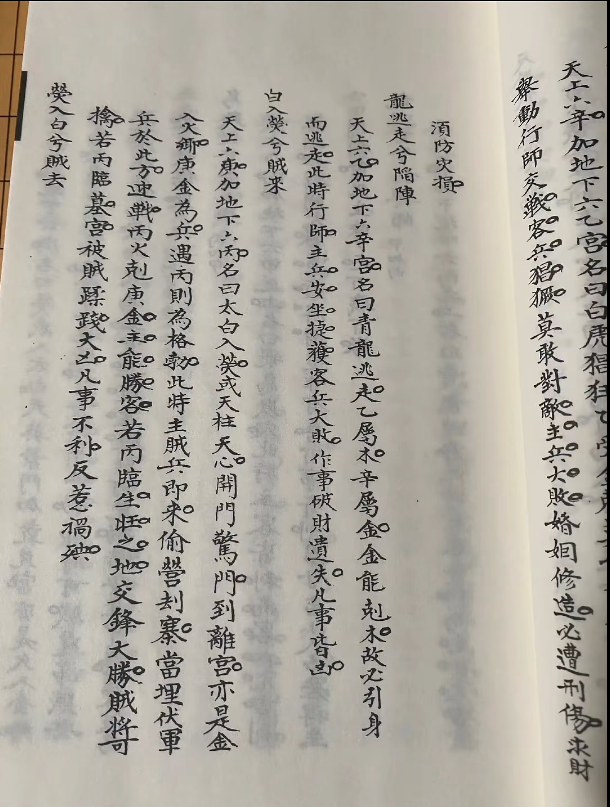 天上六辛加地下六乙宮名曰白虎猖狂
舉動行師交戰客兵猖獗莫敢對敵主兵大敗婚姻修造必遭刑傷求財
須防灾損
龍逃走兮陷陣
天上六乙加地下六辛宮名曰青龍逃走乙屬木辛屬金金能剋木故必引身
而逃走此時行師主兵安坐捷獲客兵大敗作事破財遺失凡事皆凶
白入熒兮賊來
天上六庚加地下六丙名曰太白入熒或天柱天心開門驚門到離宮亦是金
入火鄉庚金為兵遇丙則為格勃此時主賊兵即來偷營刦寨當埋伏軍
兵於此方迎戰丙火剋庚金主能勝客若丙臨生旺之地交鋒大勝賊將可
擒若丙臨墓宮被賊蹂踐大凶凡事不利反惹禍殃
熒入白兮賊去